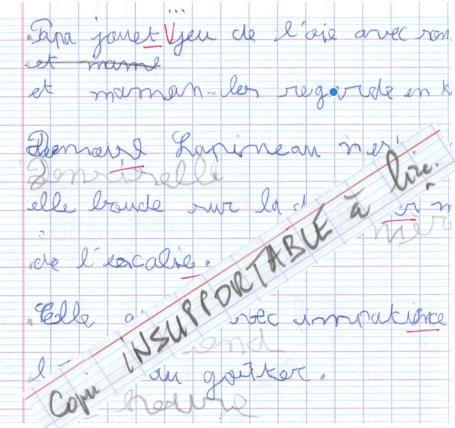 Papa jouet V jeu de l'oie avec son
et mame
et maman les regarde en
Demairel Lapineau n'es
Demoiselle
elle boude sur la
de l'escalie.
Elle a avec impatience
end
l au goûtker.
heure
Copie INSUPPORTABLE à lire.